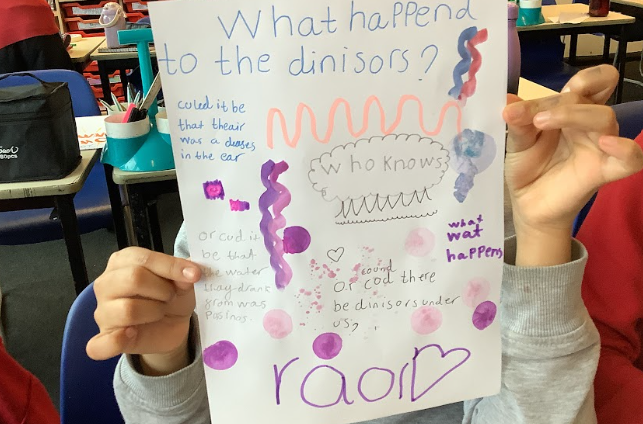 What happend
to the dinisors?
culed it be
that theair
was a deases
in the ear
who knows
or cud it
be that
the water
thay drank
from was
what
wat
happens
or cod there
round
be dinisors under
us?
raor